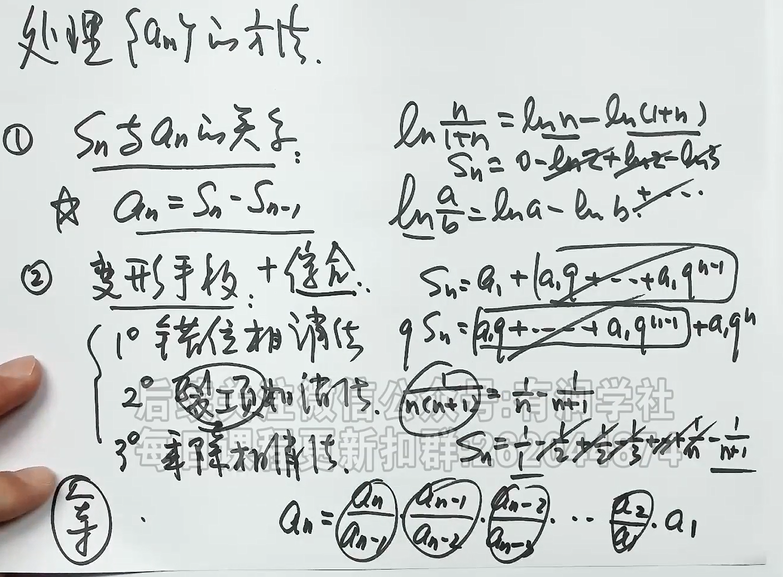 处理{an}的方法.
① Sn与an的关系:
☆ an = Sn - Sn-1
② 变形手段: + 结合..
1° 错位相消法
2° 裂项相消法.
3° 乘除相消法.
ln n/(1+n) = ln n - ln(1+n)
Sn = 0 - ln2 + ln2 - ln3 + ...
ln a/b = ln a - ln b.
Sn = a1 + (a1q + ... + a1q^(n-1)
qSn = a1q + ... + a1q^(n-1) + a1q^n
1/(n(n+1)) = 1/n - 1/(n+1)
Sn = 1/1 - 1/2 + 1/2 - 1/3 + ... + 1/n - 1/(n+1)
an = an/an-1 · an-1/an-2 · an-2/an-3 · ... · a2/a1 · a1